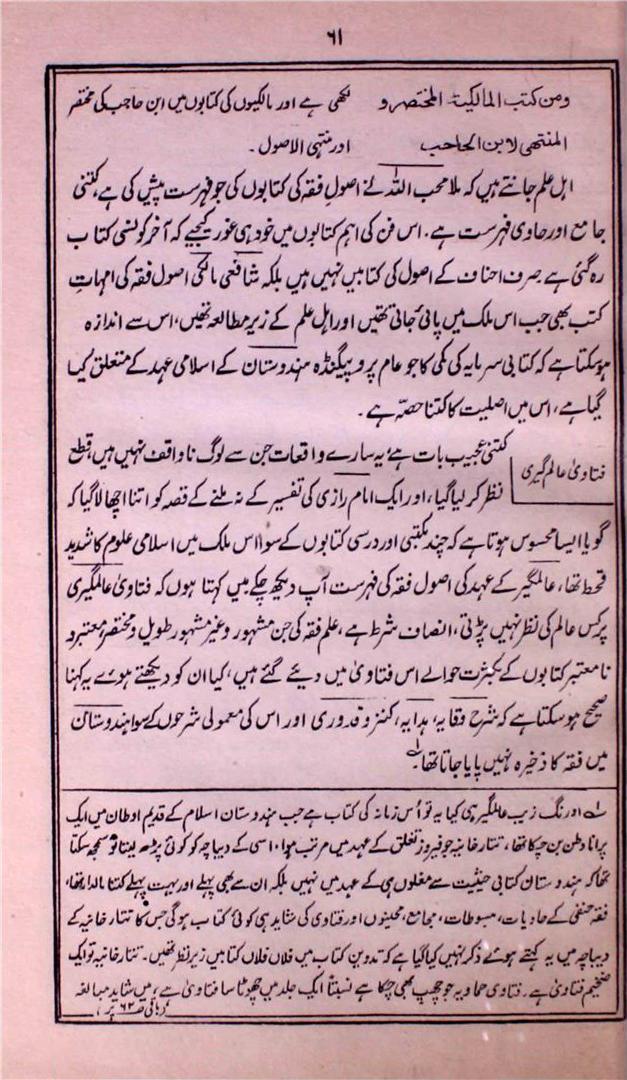 ۶۱
ومن کتب المالکیۃ المختصر و لکھی ہے اور مالکیوں کی کتابوں میں ابن حاجب کی مختصر
المنتھی لابن الحاجب اور منتہی الاصول۔
اہل علم جانتے ہیں کہ ملا محب اللہ نے اصولِ فقہ کی کتابوں کی جو فہرست پیش کی ہے، کتنی
جامع اور حاوی فہرست ہے۔ اس فن کی اہم کتابوں میں خود ہی غور کیجیے کہ آخر کونسی کتاب
رہ گئی ہے صرف احناف کے اصول کی کتابیں نہیں ہیں بلکہ شافعی مالکی اصول فقہ کی امہاتِ
کتب بھی جب اس ملک میں پائی جاتی تھیں اور اہل علم کے زیر مطالعہ تھیں، اس سے اندازہ
ہوسکتا ہے کہ کتابی سرمایہ کی کمی کا جو عام پروپیگنڈہ ہندوستان کے اسلامی عہد کے متعلق کیا
گیا ہے، اس میں اصلیت کا کتنا حصہ ہے۔
فتاویٰ عالم گیری
کتنی عجیب بات ہے، یہ سارے واقعات جن سے لوگ ناواقف نہیں ہیں، قطع
نظر کر لیا گیا، اور ایک امام رازی کی تفسیر کے نہ ملنے کے قصہ کو اتنا اچھالا گیا کہ
گویا ایسا محسوس ہوتا ہے کہ چند مکتبی اور درسی کتابوں کے سوا اس ملک میں اسلامی علوم کا شدید
قحط تھا، عالمگیر کے عہد کی اصول فقہ کی فہرست آپ دیکھ چکے میں کہتا ہوں کہ فتاویٰ عالمگیری
پر کس عالم کی نظر نہیں پڑتی، انصاف شرط ہے، علم فقہ کی جن مشہور وغیر مشہور طویل و مختصر معتبر و
نا معتبر کتابوں کے بکثرت حوالے اس فتاویٰ میں دیئے گئے ہیں، کیا ان کو دیکھتے ہوئے یہ کہنا
صحیح ہوسکتا ہے کہ شرح وقایہ، ہدایہ، کنز و قدوری اور اس کی معمولی شرحوں کے سوا ہندوستان
میں فقہ کا ذخیرہ نہیں پایا جاتا تھا۔ ؎۱
؎۱ اورنگ زیب عالمگیر ہی کیا یہ تو اُس زمانہ کی کتاب ہے جب ہندوستان اسلام کے قدیم اوطان میں ایک
پرانا وطن بن چکا تھا، تتار خانیہ جو فیروز تغلق کے عہد میں مرتب ہوا، اسی کے دیباچہ کو کوئی پڑھ لیتا تو سمجھ سکتا
تھا کہ ہندوستان کتابی حیثیت سے مغلوں ہی کے عہد میں نہیں بلکہ ان سے بھی پہلے اور بہت پہلے کتنا مالدار تھا،
فقہ حنفی کے حاویات، مبسوطات، مجامع، محیطوں اور فتاوی کی شاید ہی کوئی کتاب ہوگی جس کا تتار خانیہ کے
دیباچہ میں یہ کہتے ہوئے ذکر نہیں کیا گیا ہے کہ تدوین کتاب میں فلاں فلاں کتابیں زیر نظر تھیں۔ تتار خانیہ تو ایک
ضخیم فتاویٰ ہے۔ فتاوی حمادیہ جو چھپ بھی چکا ہے نسبتًا ایک جلد میں چھوٹا سا فتاویٰ ہے، میں شاید مبالغہ
(باقی ص ۶۲ پر)